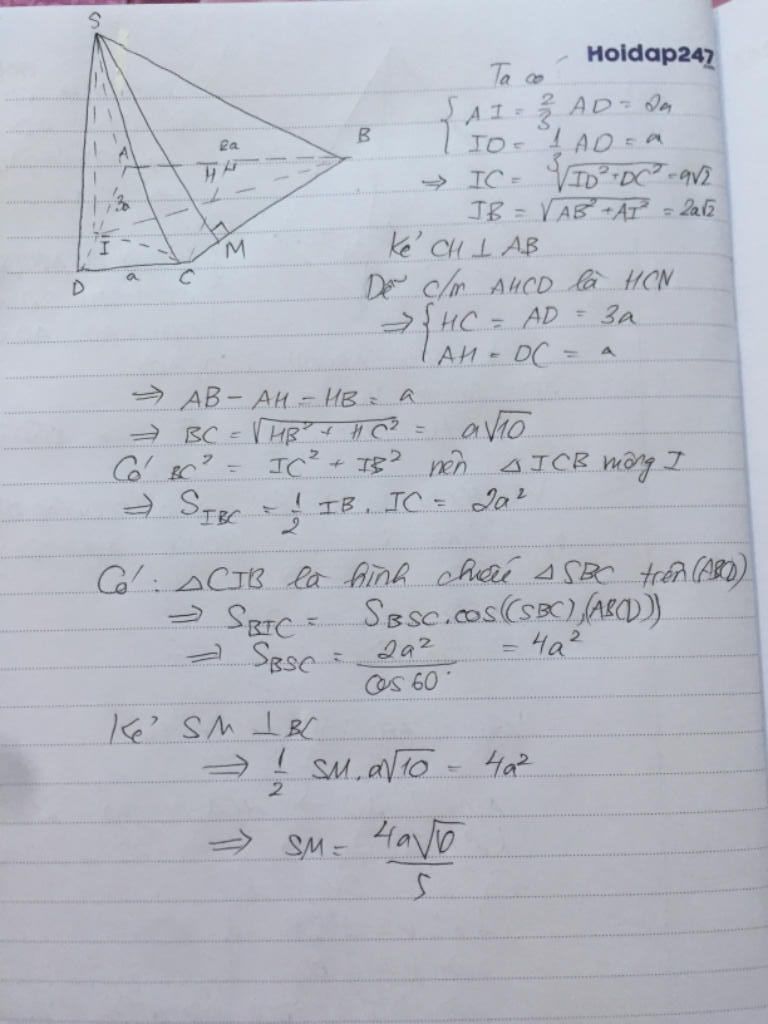 Hoidap247
S
A
2a
B
H
3a
I
M
D
a
C
Ta có
{ AI = 2/3 AD = 2a
ID = 1/3 AD = a
⇒ IC = √(ID² + DC²) = a√2
IB = √(AB² + AI²) = 2a√2
Kẻ CH ⊥ AB
Dễ c/m AHCD là HCN
⇒ { HC = AD = 3a
AH = DC = a
⇒ AB - AH - HB = a
⇒ BC = √(HB² + HC²) = a√10
Có BC² = IC² + IB² nên △ICB vuông I
⇒ S_IBC = 1/2 IB . IC = 2a²
Có : △CIB là hình chiếu △SBC trên (ABCD)
⇒ S_BIC = S_BSC . cos((SBC),(ABCD))
⇒ S_BSC = 2a²/cos60° = 4a²
Kẻ SM ⊥ BC
⇒ 1/2 SM . a√10 = 4a²
⇒ SM = 4a√10/5